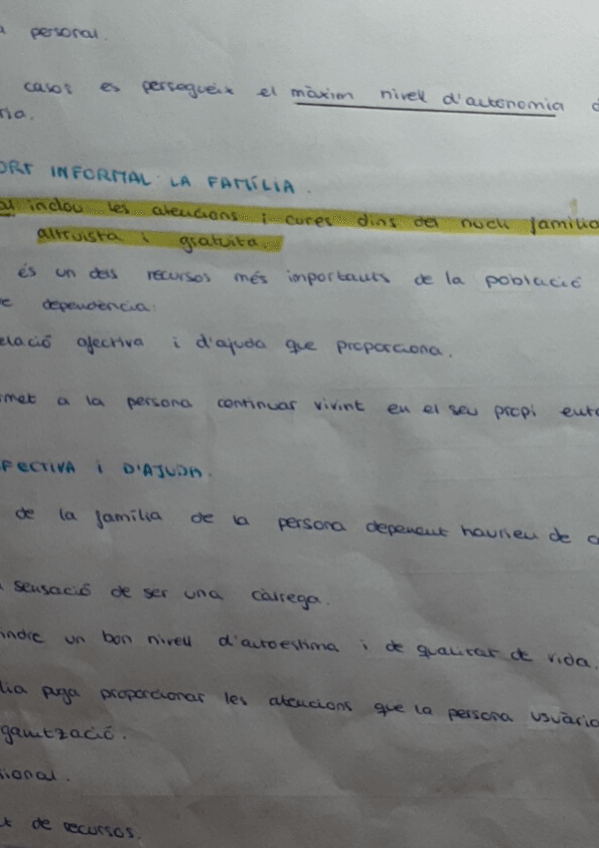 personal.
casos es persegueix el màxim nivell d'autonomia
ria.
ORT INFORMAL: LA FAMÍLIA.
inclou les atencions i cures dins del nucli familia
altruista i gratuita.
és un dels recursos més importants de la població
e dependència:
elació afectiva i d'ajuda que proporciona.
met a la persona continuar vivint en el seu propi ento
FECTIVA i D'AJUDA.
de la família de la persona dependent haurien de
sensació de ser una càrrega.
indre un bon nivell d'autoestima i de qualitat de vida.
lia puga proporcionar les atencions que la persona usuària
ganització.
sional.
t de recursos.